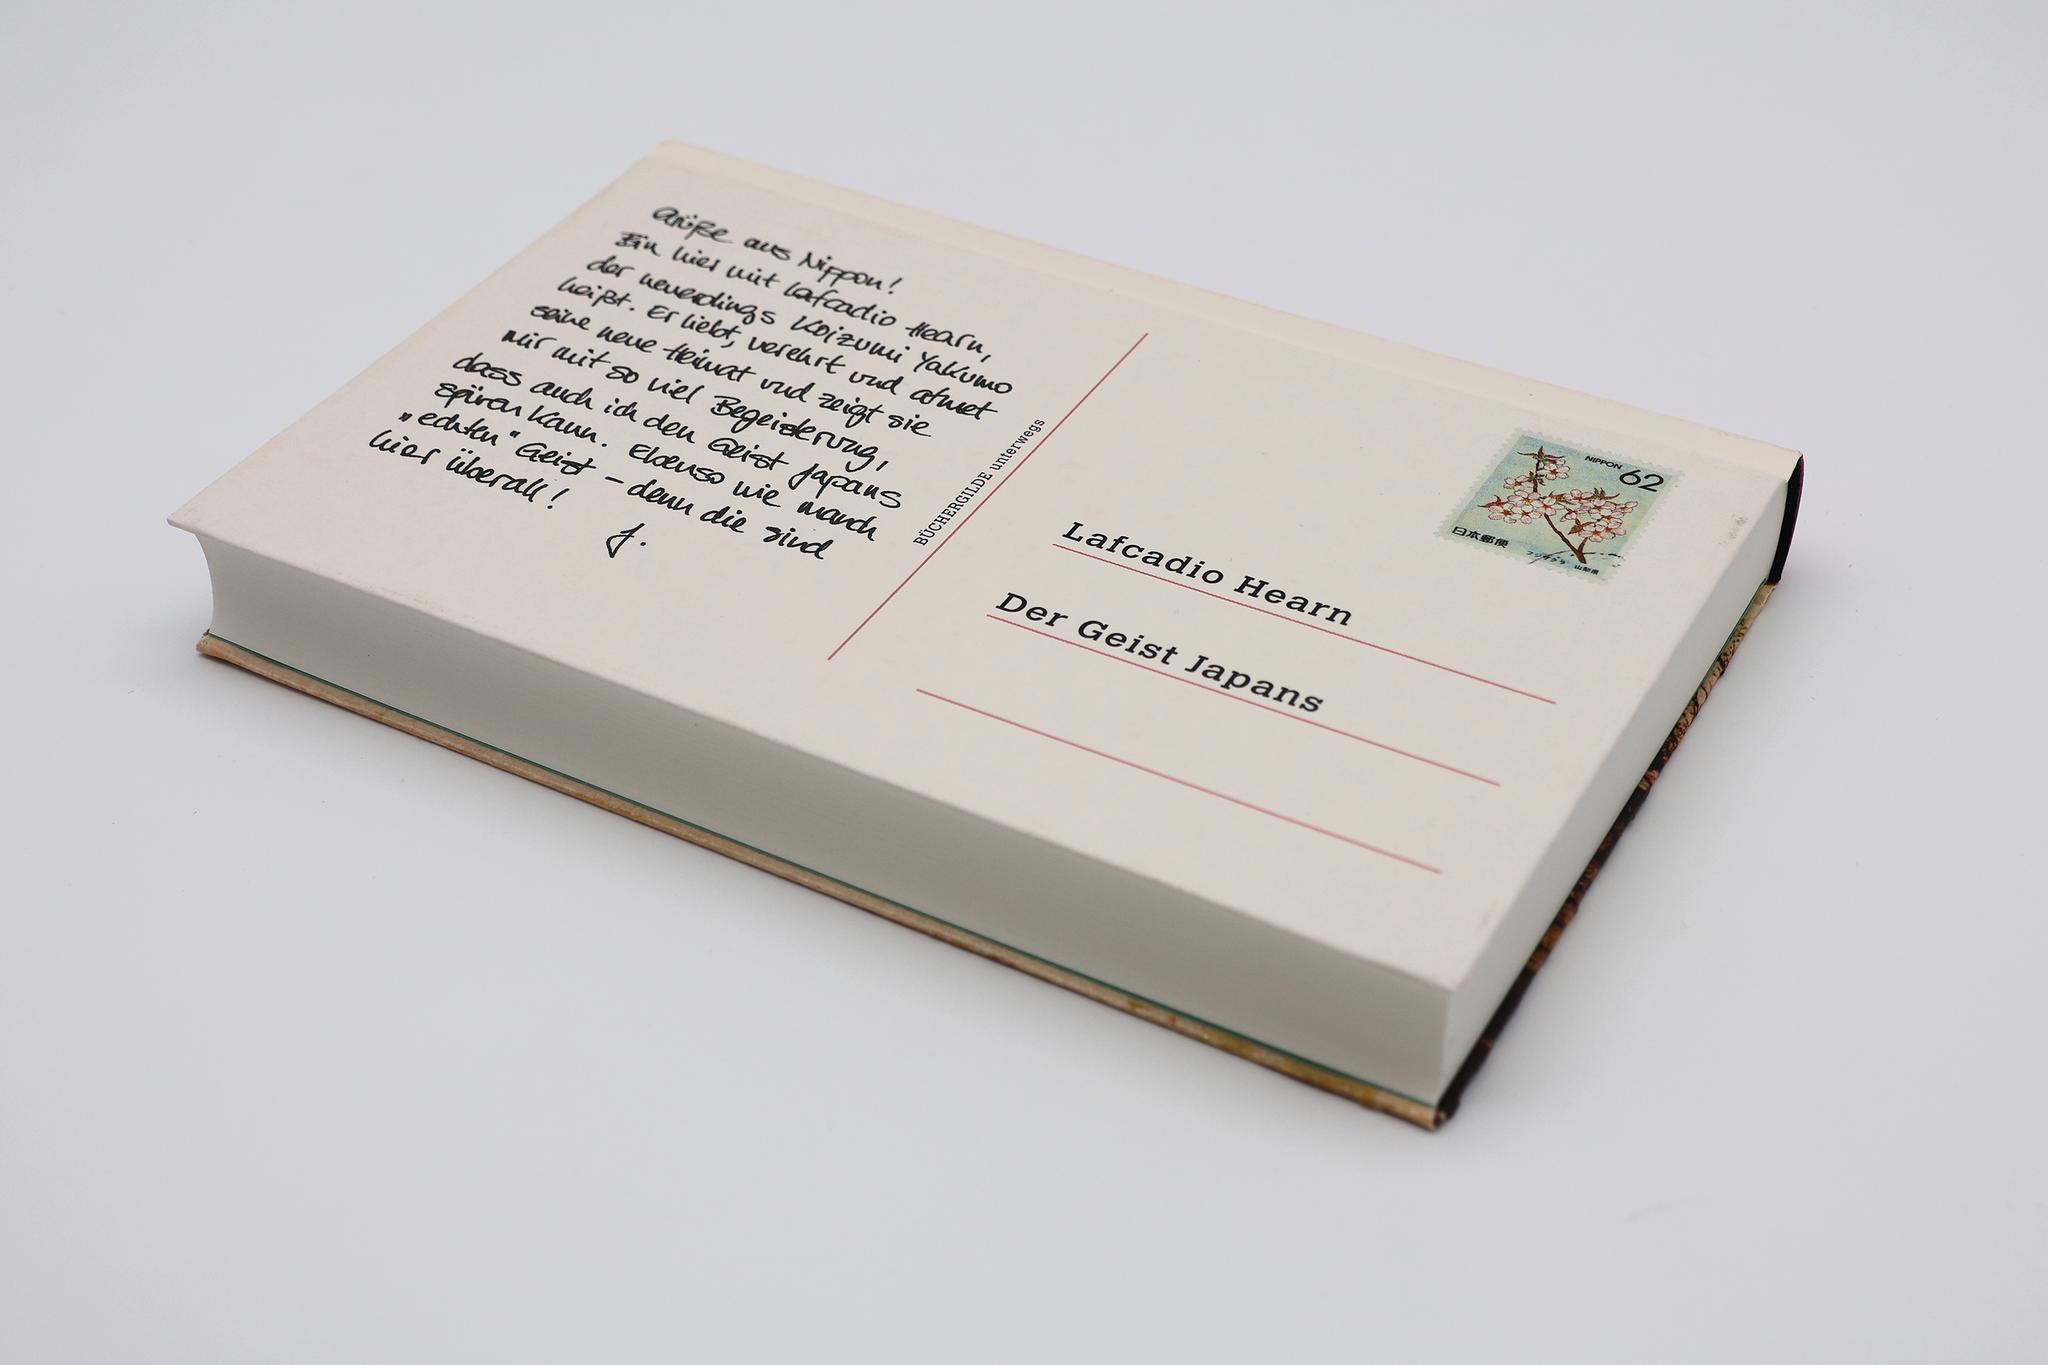 Grüße aus Nippon!
Ein hier mit Lafcadio Hearn,
der neuerdings Koizumi Yakumo
heißt. Er liebt, verehrt und atmet
seine neue Heimat und zeigt sie
mir mit so viel Begeisterung,
dass auch ich den Geist Japans
spüren kann. Ebenso wie manch
„echten“ Geist – denn die sind
hier überall!
J.
BÜCHERGILDE unterwegs
NIPPON 62
日本郵便
山梨県
Lafcadio Hearn
Der Geist Japans